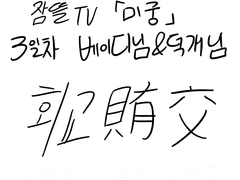 잠뜰 TV 「미궁」
3일차 베이디님&덕개님
회교 賄交